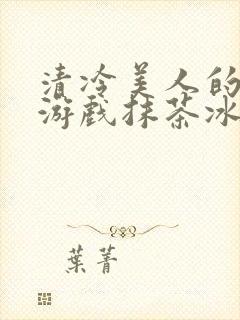 清冷美人的
游戏抹茶冰
葉菁